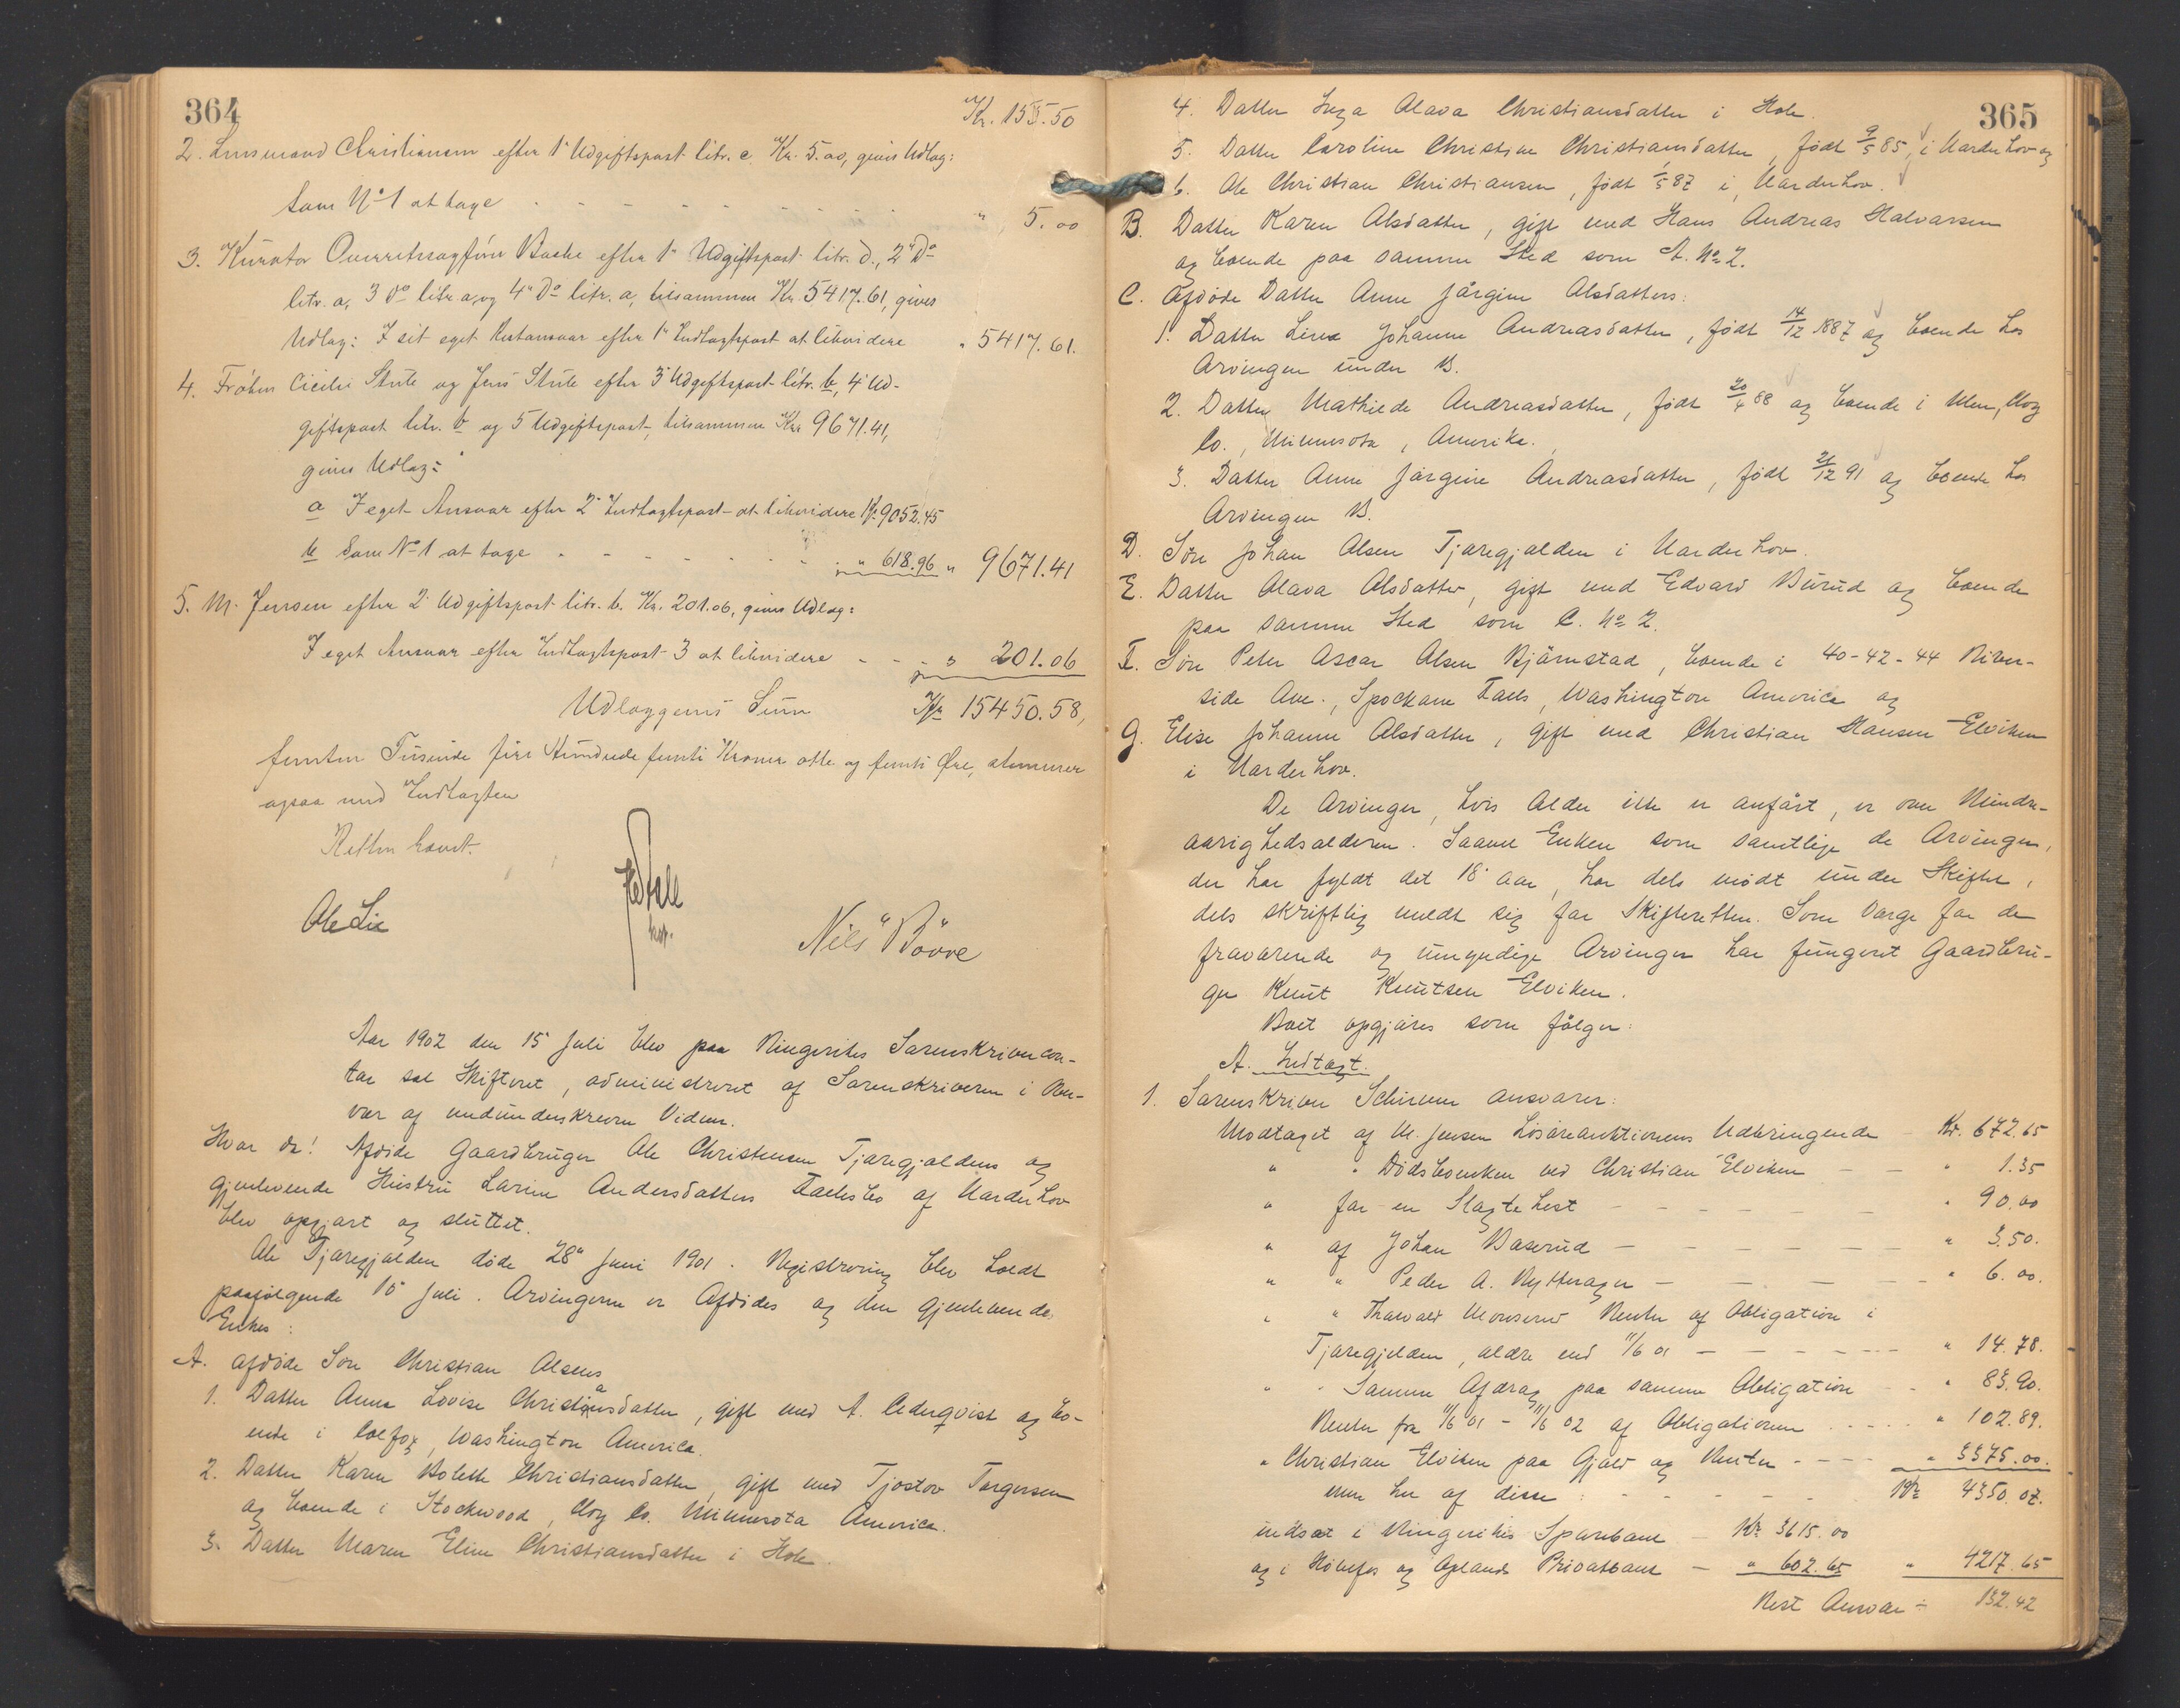 364
Kr. 155.50
2. Lensmand Christiansen efter 1' Udgiftspost litr. c. Kr. 5.00, gives Udlæg:
Som No 1 at tage - - - - " 5.00
3. Kurator Overretssagfører Bache efter 1' Udgiftspost litr. d., 2' Do
litr. a, 3 Do litr a, og 4' Do litr. a, tilsammen Kr. 5417.61, gives
Udlæg: I sit eget Restansvar efter 1' Indtægtspost at likvidere " 5417.61.
4. Frøken Cicilie Stute og Jens Stute efter 3' Udgiftspost litr. b, 4' Ud-
giftspost litr. b og 5 Udgiftspost, tilsammen Kr. 9671.41,
gives Udlæg:
a I eget Ansvar efter 2' Indtægtspost at likvidere Kr. 9052.45
b Som No 1 at tage - - - - " 618.96 " 9671.41
5. M. Jensen efter 2' Udgiftspost litr. b. Kr. 201.06, gives Udlæg:
I eget Ansvar efter Indtægtspost 3 at likvidere - - - " 201.06
Udlæggenes Sum Kr. 15450.58,
femten Tusinde fire Hundrede femti Kroner otte og femti Øre, stemmer
ogsaa med Indtægten
Retten hævet.
Ole Lie
Nils Bööve
Aar 1902 den 15 Juli blev paa Ringerikes Sorenskrivercon-
tor sat Skifteret, administreret af Sorenskriveren i Over-
vær af medunderskrevne Vidner.
Hvor da: Afdøde Gaardbruger Ole Christensen Tjæregjældens og
gjenlevende Hustru Larine Andersdatters Fællesbo af Norderhov
blev opgjort og sluttet.
Ole Tjæregjælden døde 28' Juni 1901. Registrering blev holdt
paafølgende 15 Juli. Arvingerne er Afdødes og den gjenlevendes
Enkes:
A. afdøde Søn Christian Olsens
1. Datter Anna Lovise Christiansdatter, gift med A. Cederqvist og bo-
ende i Colfax, Washington America.
2. Datter Karen Bolette Christiansdatter, gift med Tjostov Torgersen
og boende i Stockwood, Clay Co. Minnesota America.
3. Datter Maren Eline Christiansdatter i Hole.
365
4. Datter Inga Olava Christiansdatter i Hole.
5. Datter Caroline Christine Christiansdatter, født 9/5 85, i Norderhov og
6. Ole Christian Christiansen, født 1/5 87 i Norderhov.
B. Datter Karen Olsdatter, gift med Hans Andreas Halvorsen
og boende paa samme Sted som A. No 2.
C. Afdøde Datter Anne Jørgine Olsdatters:
1. Datter Lina Johanne Andreasdatter, født 14/12 1887 og boende hos
Arvingen under B.
2. Datter Mathilde Andreasdatter, født 20/4 88 og boende i Ulen, Clay
Co., Minnesota, Amerika.
3. Datter Anne Jørgine Andreasdatter, født 21/12 91 og boende hos
Arvingen B.
D. Søn Johan Olsen Tjæregjælden i Norderhov.
E. Datter Olava Olsdatter, gift med Edvard Burud og boende
paa samme Sted som C. No 2.
F. Søn Peter Oscar Olsen Bjørnstad, boende i 40-42-44 River-
side Ave., Spockane Falls, Washington America og
G. Elise Johanne Olsdatter, gift med Christian Hansen Elviken
i Norderhov.
De Arvinger, hvis Alder ikke er anført, er over Mindre-
aarighedsalderen. Saavel Enken som samtlige de Arvinger,
der har fyldt det 18' Aar, har dels mødt under Skiftet,
dels skriftlig meldt sig for Skifteretten. Som Værge for de
fraværende og umyndige Arvinger har fungeret Gaardbru-
ger Knut Knutsen Elviken.
Boet opgjøres som følger:
A. Indtægt.
1. Sorenskriver Schiven ansvarer:
Modtaget af M. Jensen Løsøreauktionens Udbringende - Kr. 672.65
" " Dødsboenken ved Christian Elviken - - " 1.35
" for en Slagtehest - - - - - " 90.00
" af Johan Baserud - - - - - " 3.50.
" " Peder A. Rytterager - - - - " 6.00.
" " Thorvald Monserud Renter af Obligation i
Tjæregjælden, ældre end 11/6 01 - - - - " 14.78.
" " Samme Afdrag paa samme Obligation - " 83.90.
Renter fra 11/6 01 - 11/6 02 af Obligationen - - - " 102.89.
" Christian Elviken paa Gjæld og Renter - - - " 3375.00.
men her af disse: - - - - - Kr. 4350.07.
indsat i Ringerikes Sparebank - Kr. 3615.00
og i Hønefos og Oplands Privatbank - " 602.65 " 4217.65
Rest Ansvar - 132.42